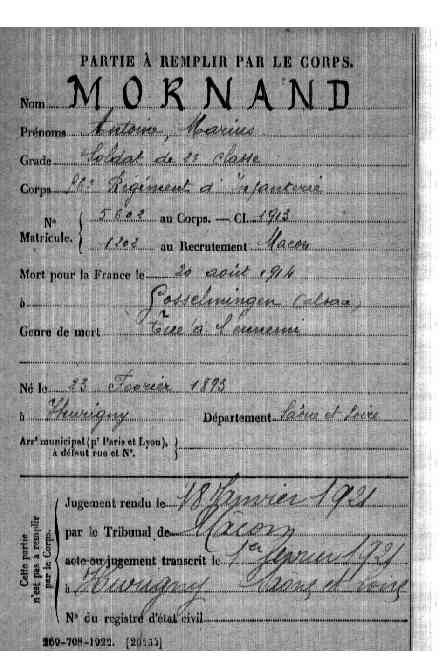 PARTIE À REMPLIR PAR LE CORPS.
Nom MORNAND
Prénoms Antoine, Marius
Grade Soldat de 2e classe
Corps Régiment d'Infanterie
Nº Matricule. { 5602 au Corps. — Cl. 1913
1202 au Recrutement Macon
Mort pour la France le 20 août 1914
à Gosselmingen (alsace)
Genre de mort Tué à l'ennemi
Né le 23 Fevrier 1893
à Hurigny Département Saône et Loire
Arrt municipal (pr Paris et Lyon), à défaut rue et Nº. }
Cette partie n'est pas à remplir par le Corps.
Jugement rendu le 18 Janvier 1921
par le Tribunal de Macon
acte ou jugement transcrit le 1er fevrier 1921
à Hurigny Saône et Loire
Nº du registre d'état civil
269-708-1922. [26434]